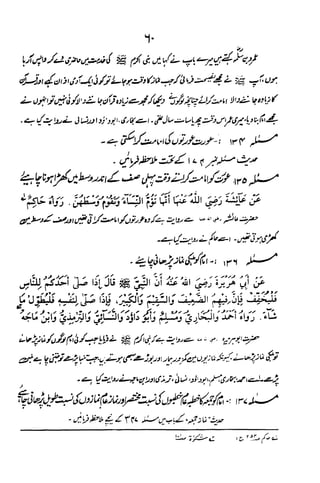 ۶۰
عمرو بن سلمہ کہتے ہیں میرے باپ نے کہا میں نبی اکرم ﷺ کی خدمت میں حاضری دے کر واپس آ رہا
ہوں، آپ ﷺ نے مجھے نصیحت فرمائی کہ جب نماز کا وقت ہو جائے تو کوئی ایک آدمی اذان کہے اور قرآن
کا زیادہ جاننے والا امامت کرائے چنانچہ لوگوں نے دیکھا کہ مجھ سے زیادہ قرآن جاننے والا کوئی نہیں تو انہوں نے
مجھے امام بنا دیا، میری عمر اس وقت چھ یا سات سال تھی۔ اسے بخاری، ابوداؤد اور نسائی نے روایت کیا ہے۔
مسئلہ ۱۳۴ :- عورت عورتوں کی امامت کرا سکتی ہے۔
حدیث مسئلہ نمبر کے تحت ملاحظہ فرمائیں۔
مسئلہ ۱۳۵ عورت کو امامت کراتے وقت پہلی صف کے اندر وسط میں کھڑا ہونا چاہیئے
عَنْ عَائِشَةَ رَضِيَ اللّٰهُ عَنْهَا أَنَّهَا تَؤُمُّ النِّسَاءَ وَتَقُوْمُ وَسْطَهُنَّ. رَوَاهُ حَاكِمٌ
حضرت عائشہ سے روایت ہے کہ وہ عورتوں کو امامت کراتی تھیں اور صف کے وسط میں
کھڑی ہوتی تھیں۔ اسے حاکم نے روایت کیا ہے۔
مسئلہ ۱۳۶ :- امام کو ہلکی نماز پڑھانی چاہیئے۔
عَنْ أَبِيْ هُرَيْرَةَ رَضِيَ اللّٰهُ عَنْهُ أَنَّ النَّبِيَّ ﷺ قَالَ إِذَا صَلَّى أَحَدُكُمْ لِلنَّاسِ
فَلْيُخَفِّفْ فَإِنَّ فِيْهِمُ الضَّعِيْفَ وَالسَّقِيْمَ وَالْكَبِيْرَ، فَإِذَا صَلَّى لِنَفْسِهِ فَلْيُطَوِّلْ مَا
شَاءَ. رَوَاهُ أَحْمَدُ وَالْبُخَارِيُّ وَمُسْلِمٌ وَأَبُوْ دَاوُدَ وَالنَّسَائِيُّ وَالتِّرْمِذِيُّ وَابْنُ مَاجَهْ
حضرت ابو ہریرہ سے روایت ہے کہ نبی اکرم ﷺ نے فرمایا جب کوئی امام لوگوں کو نماز پڑھائے
تو ہلکی نماز پڑھائے کیونکہ نمازیوں میں کمزور بیمار اور بوڑھے سبھی ہوتے ہیں، جب تنہا پڑھے تو جتنی چاہے لمبی
پڑھے۔ اسے احمد، بخاری، مسلم، ابوداؤد، نسائی، ترمذی اور ابن ماجہ نے روایت کیا ہے۔
مسئلہ ۱۳۷ :- امام کو جمعہ کا خطبہ عام خطبوں کی نسبت مختصر اور نماز عام نمازوں کی نسبت طویل پڑھانی چاہیئے
حدیث نماز جمعہ کے باب میں مسئلہ ۳۴۷ کے تحت ملاحظہ فرمائیں۔